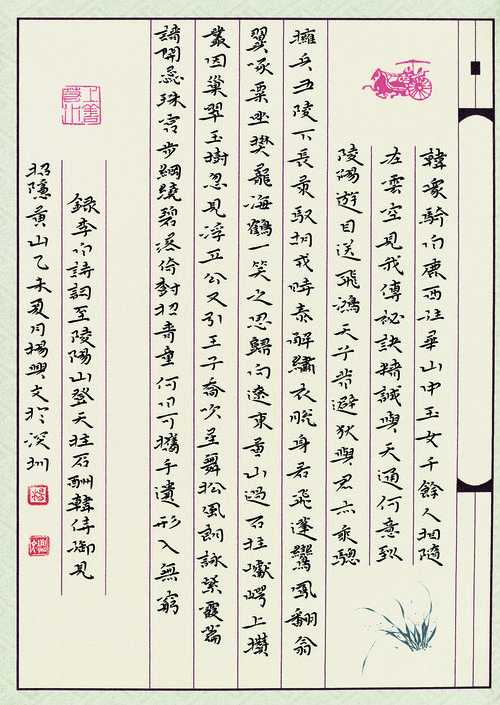 韓眾騎白鹿西往華山中玉女千餘人相隨
在雲空見我傳祕訣精誠與天通何意到
陵陽遊目送飛鴻天子昔避狄與君亦乘驄
擁兵五陵下長策馭胡戎時泰解繡衣脫身若飛蓬鸞鳳翻翕
翼啄粟坐樊籠海鶴一笑之思歸向遼東黃山過石柱巘崿上攢
叢因巢翠玉樹忽見浮丘公又引王子喬吹笙舞松風朗詠紫霞篇
請開蕊珠宮步綱繞碧落倚樹招青童何日可攜手遺形入無窮
上善若水
錄李白詩詞至陵陽山登天柱石酬韓侍御見
招隱黃山乙未夏月楊興文於深圳